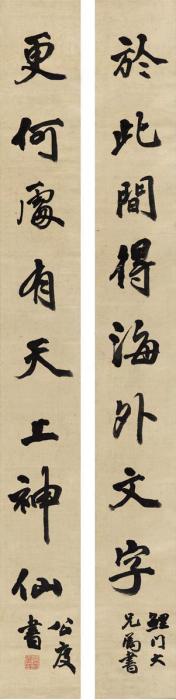 於此間得海外文字
鯉門大
兄屬書
更何處有天上神仙
公度
書